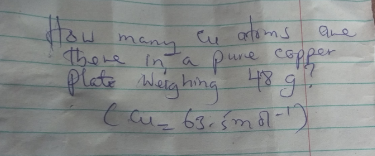 How many Cu atoms are
there in a pure copper
plate weighing 48 g?
(Cu = 63.5 mol⁻¹)